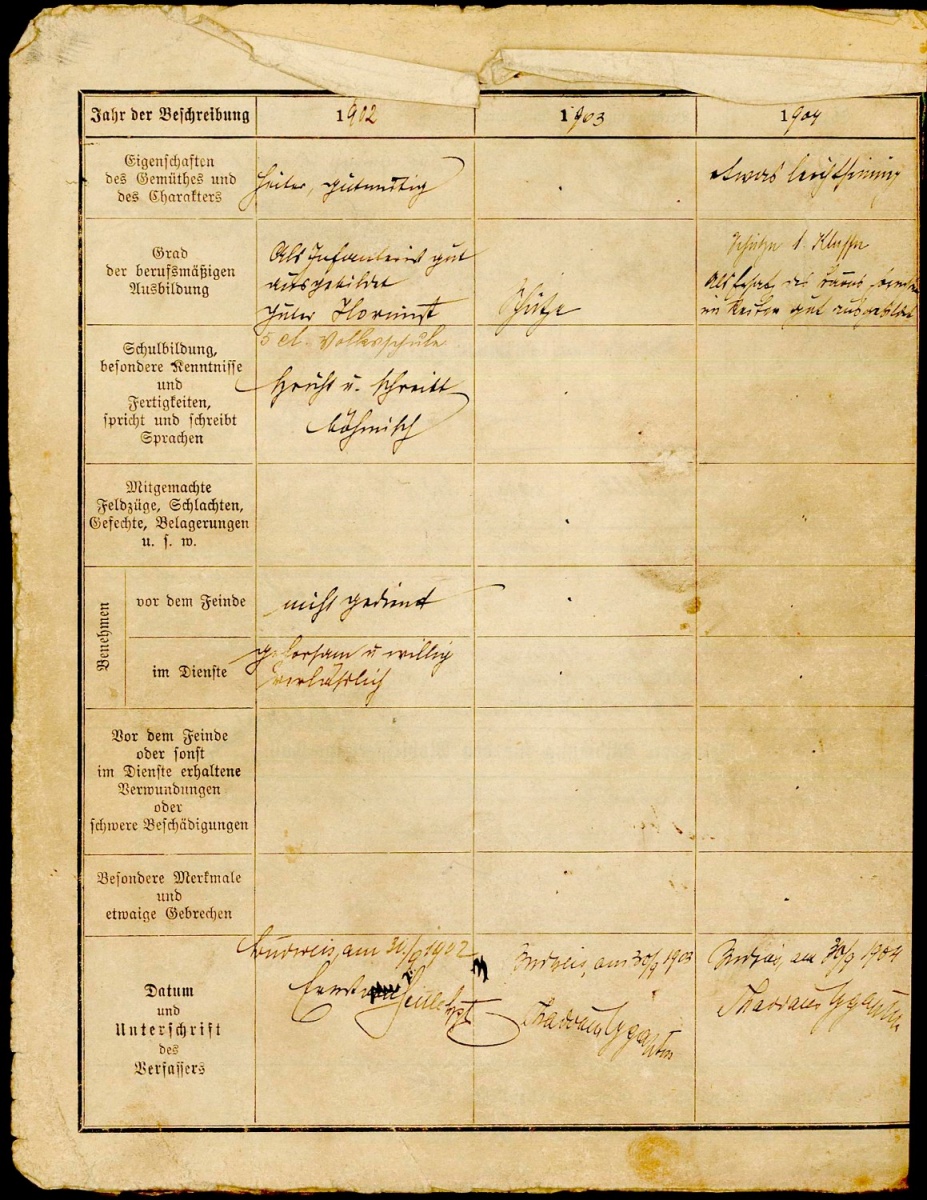 Jahr der Beschreibung 1902 1903 1904
Eigenschaften
des Gemüthes und
des Charakters
heiter, gutmütig
etwas leichtsinnig
Grad
der berufsmäßigen
Ausbildung
Als Infanterist gut
ausgebildet
guter
Schütze
Schütze 1. Klasse
gut ausgebildet
Schulbildung,
besondere Kenntnisse
und
Fertigkeiten,
spricht und schreibt
Sprachen
5 cl. Volksschule
spricht u. schreibt
böhmisch
Mitgemachte
Feldzüge, Schlachten,
Gefechte, Belagerungen
u. s. w.
Benehmen
vor dem Feinde
nicht gedient
im Dienste
gehorsam u willig
verläßlich
Vor dem Feinde
oder sonst
im Dienste erhaltene
Verwundungen
oder
schwere Beschädigungen
Besondere Merkmale
und
etwaige Gebrechen
Datum
und
Unterschrift
des
Verfassers
Budweis, am 1902
Ernst
Budweis, am 30/9 1903
Budweis, am 30/9 1904